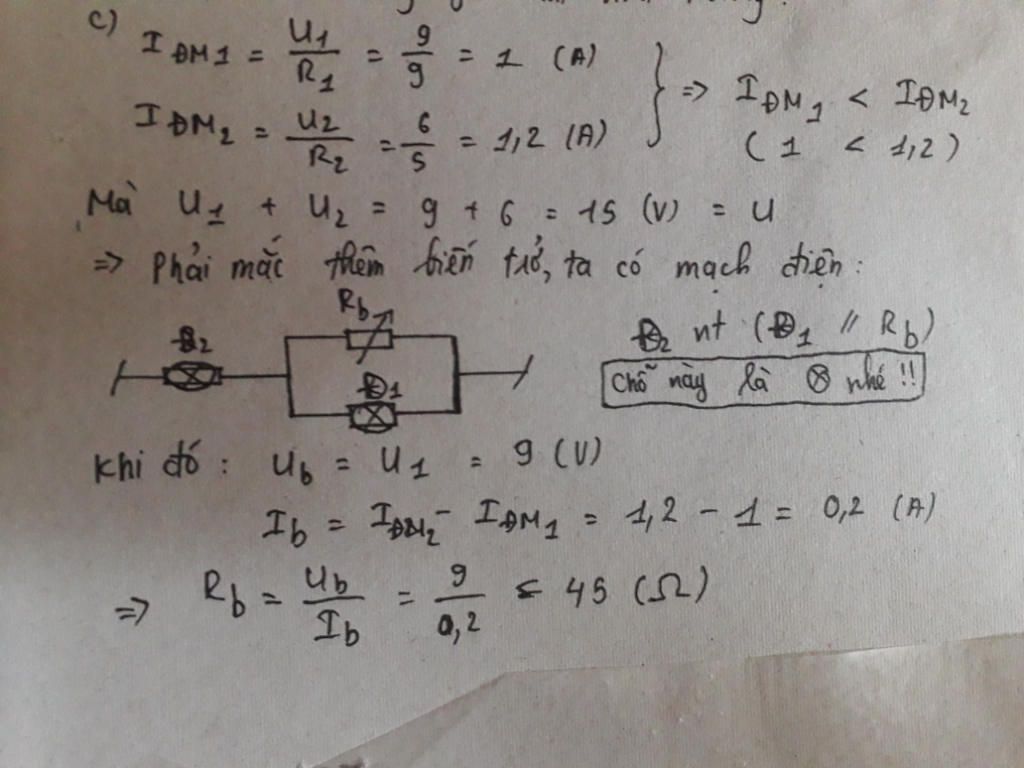 c) I ĐM1 = U1/R1 = 9/9 = 1 (A)
I ĐM2 = U2/R2 = 6/5 = 1,2 (A)
} => I ĐM1 < I ĐM2
( 1 < 1,2 )
Mà U1 + U2 = 9 + 6 = 15 (V) = U
=> Phải mắc thêm biến trở, ta có mạch điện:
Rb
Đ2
Đ1
Đ2 nt (Đ1 // Rb)
Chỗ này là ⊗ nhé !!
Khi đó : Ub = U1 = 9 (V)
Ib = IĐM2 - IĐM1 = 1,2 - 1 = 0,2 (A)
=> Rb = Ub/Ib = 9/0,2 = 45 (Ω)